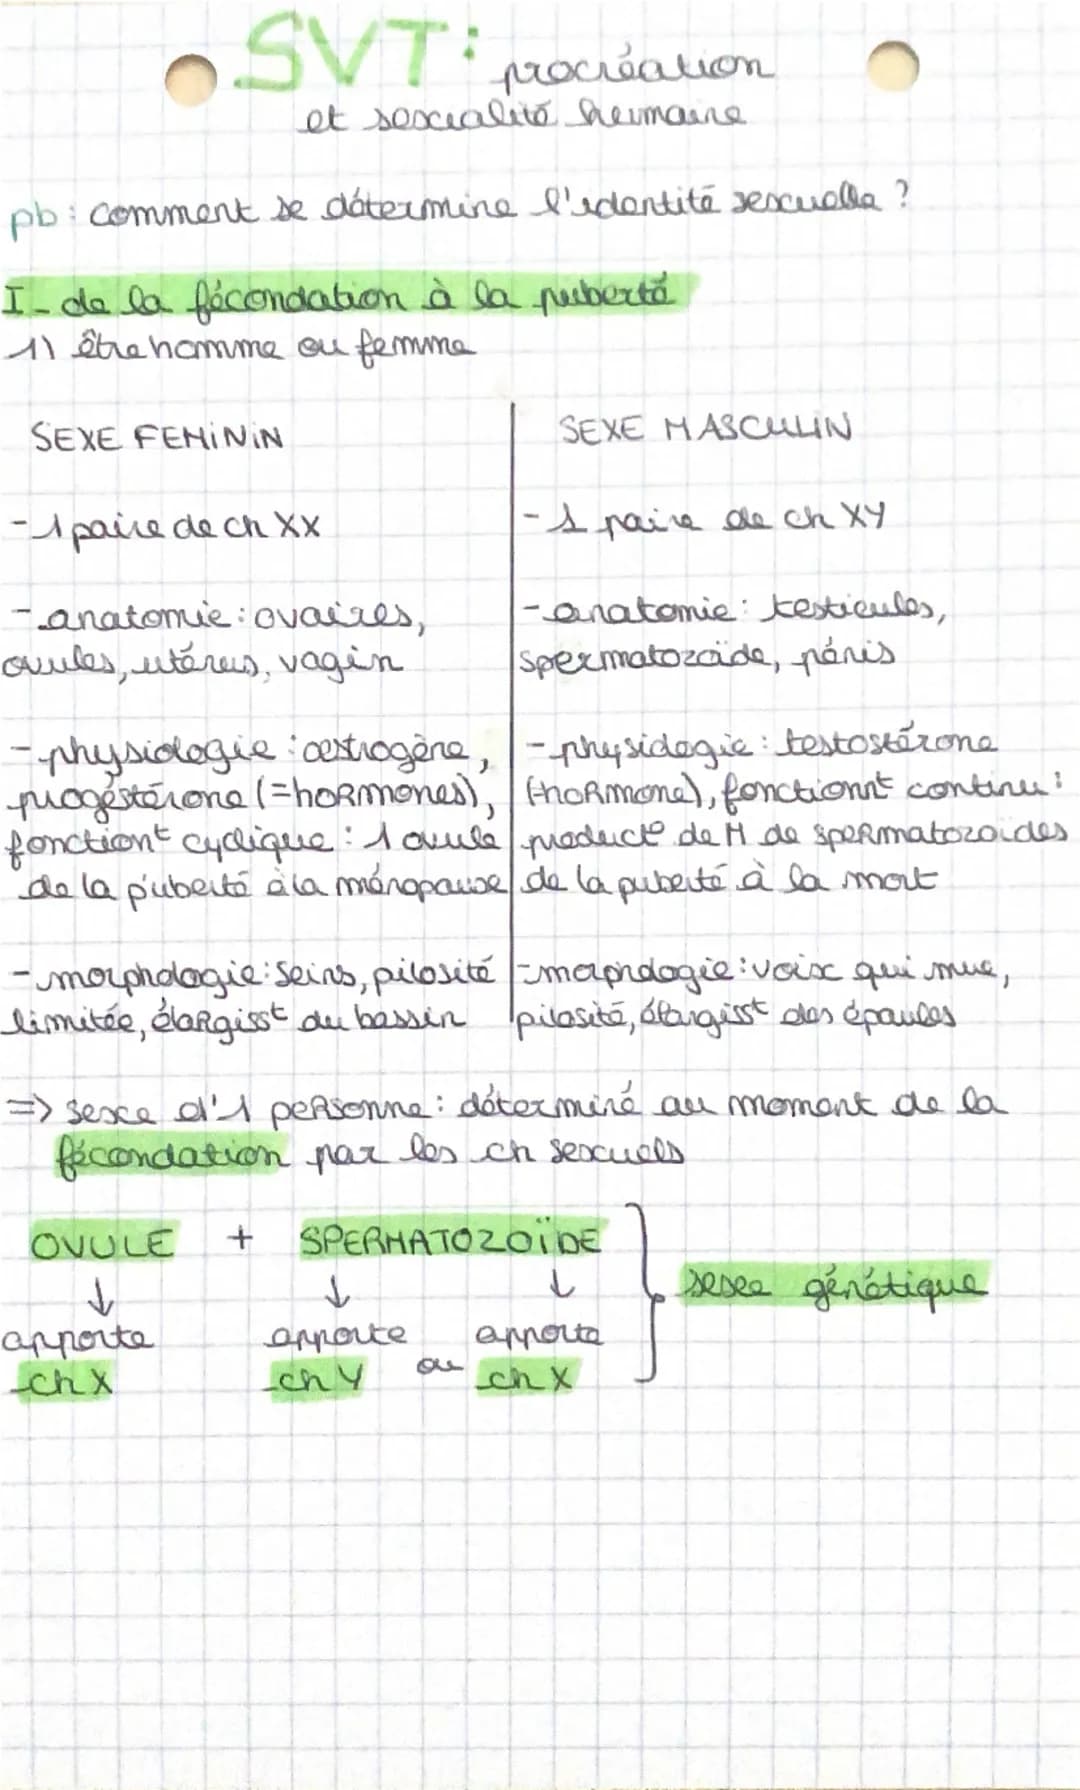 SVT: procréation
et sexualité humaine
pb: comment se détermine l'identité sexuelle ?
I- de la fécondation à la puberté
1) être homme ou femme
SEXE FEMININ
- 1 paire de ch XX
- anatomie: ovaires,
ovules, utérus, vagin
- physiologie: œstrogène,
progéstérone (=hormones),
fonctiont cyclique: 1 ovule
de la puberté à la ménopause
- morphologie: seins, pilosité
limitée, élargisst du bassin
SEXE MASCULIN
- 1 paire de ch XY
- anatomie: testicules,
spermatozoïde, pénis
- physiologie: testostérone
(=hormone), fonctionnt continu:
producte de M de spermatozoïdes
de la puberté à la mort
- morphologie: voix qui mue,
pilosité, élargisst des épaules
=> sexe d'1 personne: déterminé au moment de la
fécondation par les ch sexuels
OVULE + SPERMATOZOÏDE
↓ ↓ ↓
sexe génétique
apporte apporte apporte
ch X ch Y ou ch X